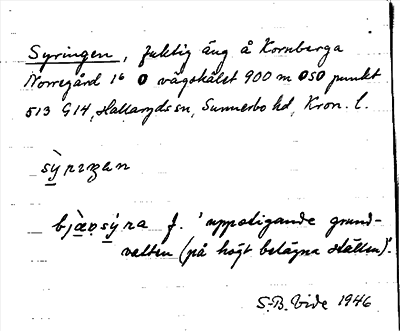 Syringen, fuktig äng å Kornberga
Norregård 1⁶ O vägskälet 900 m OSO punkt
513 G14, Hallaryds sn, Sunnerbo hd, Kron. l.
sỳrɪŋan
bjæosýra f. 'uppstigande grund-
vatten (på högt belägna ställen)'.
S.B. Vide 1946